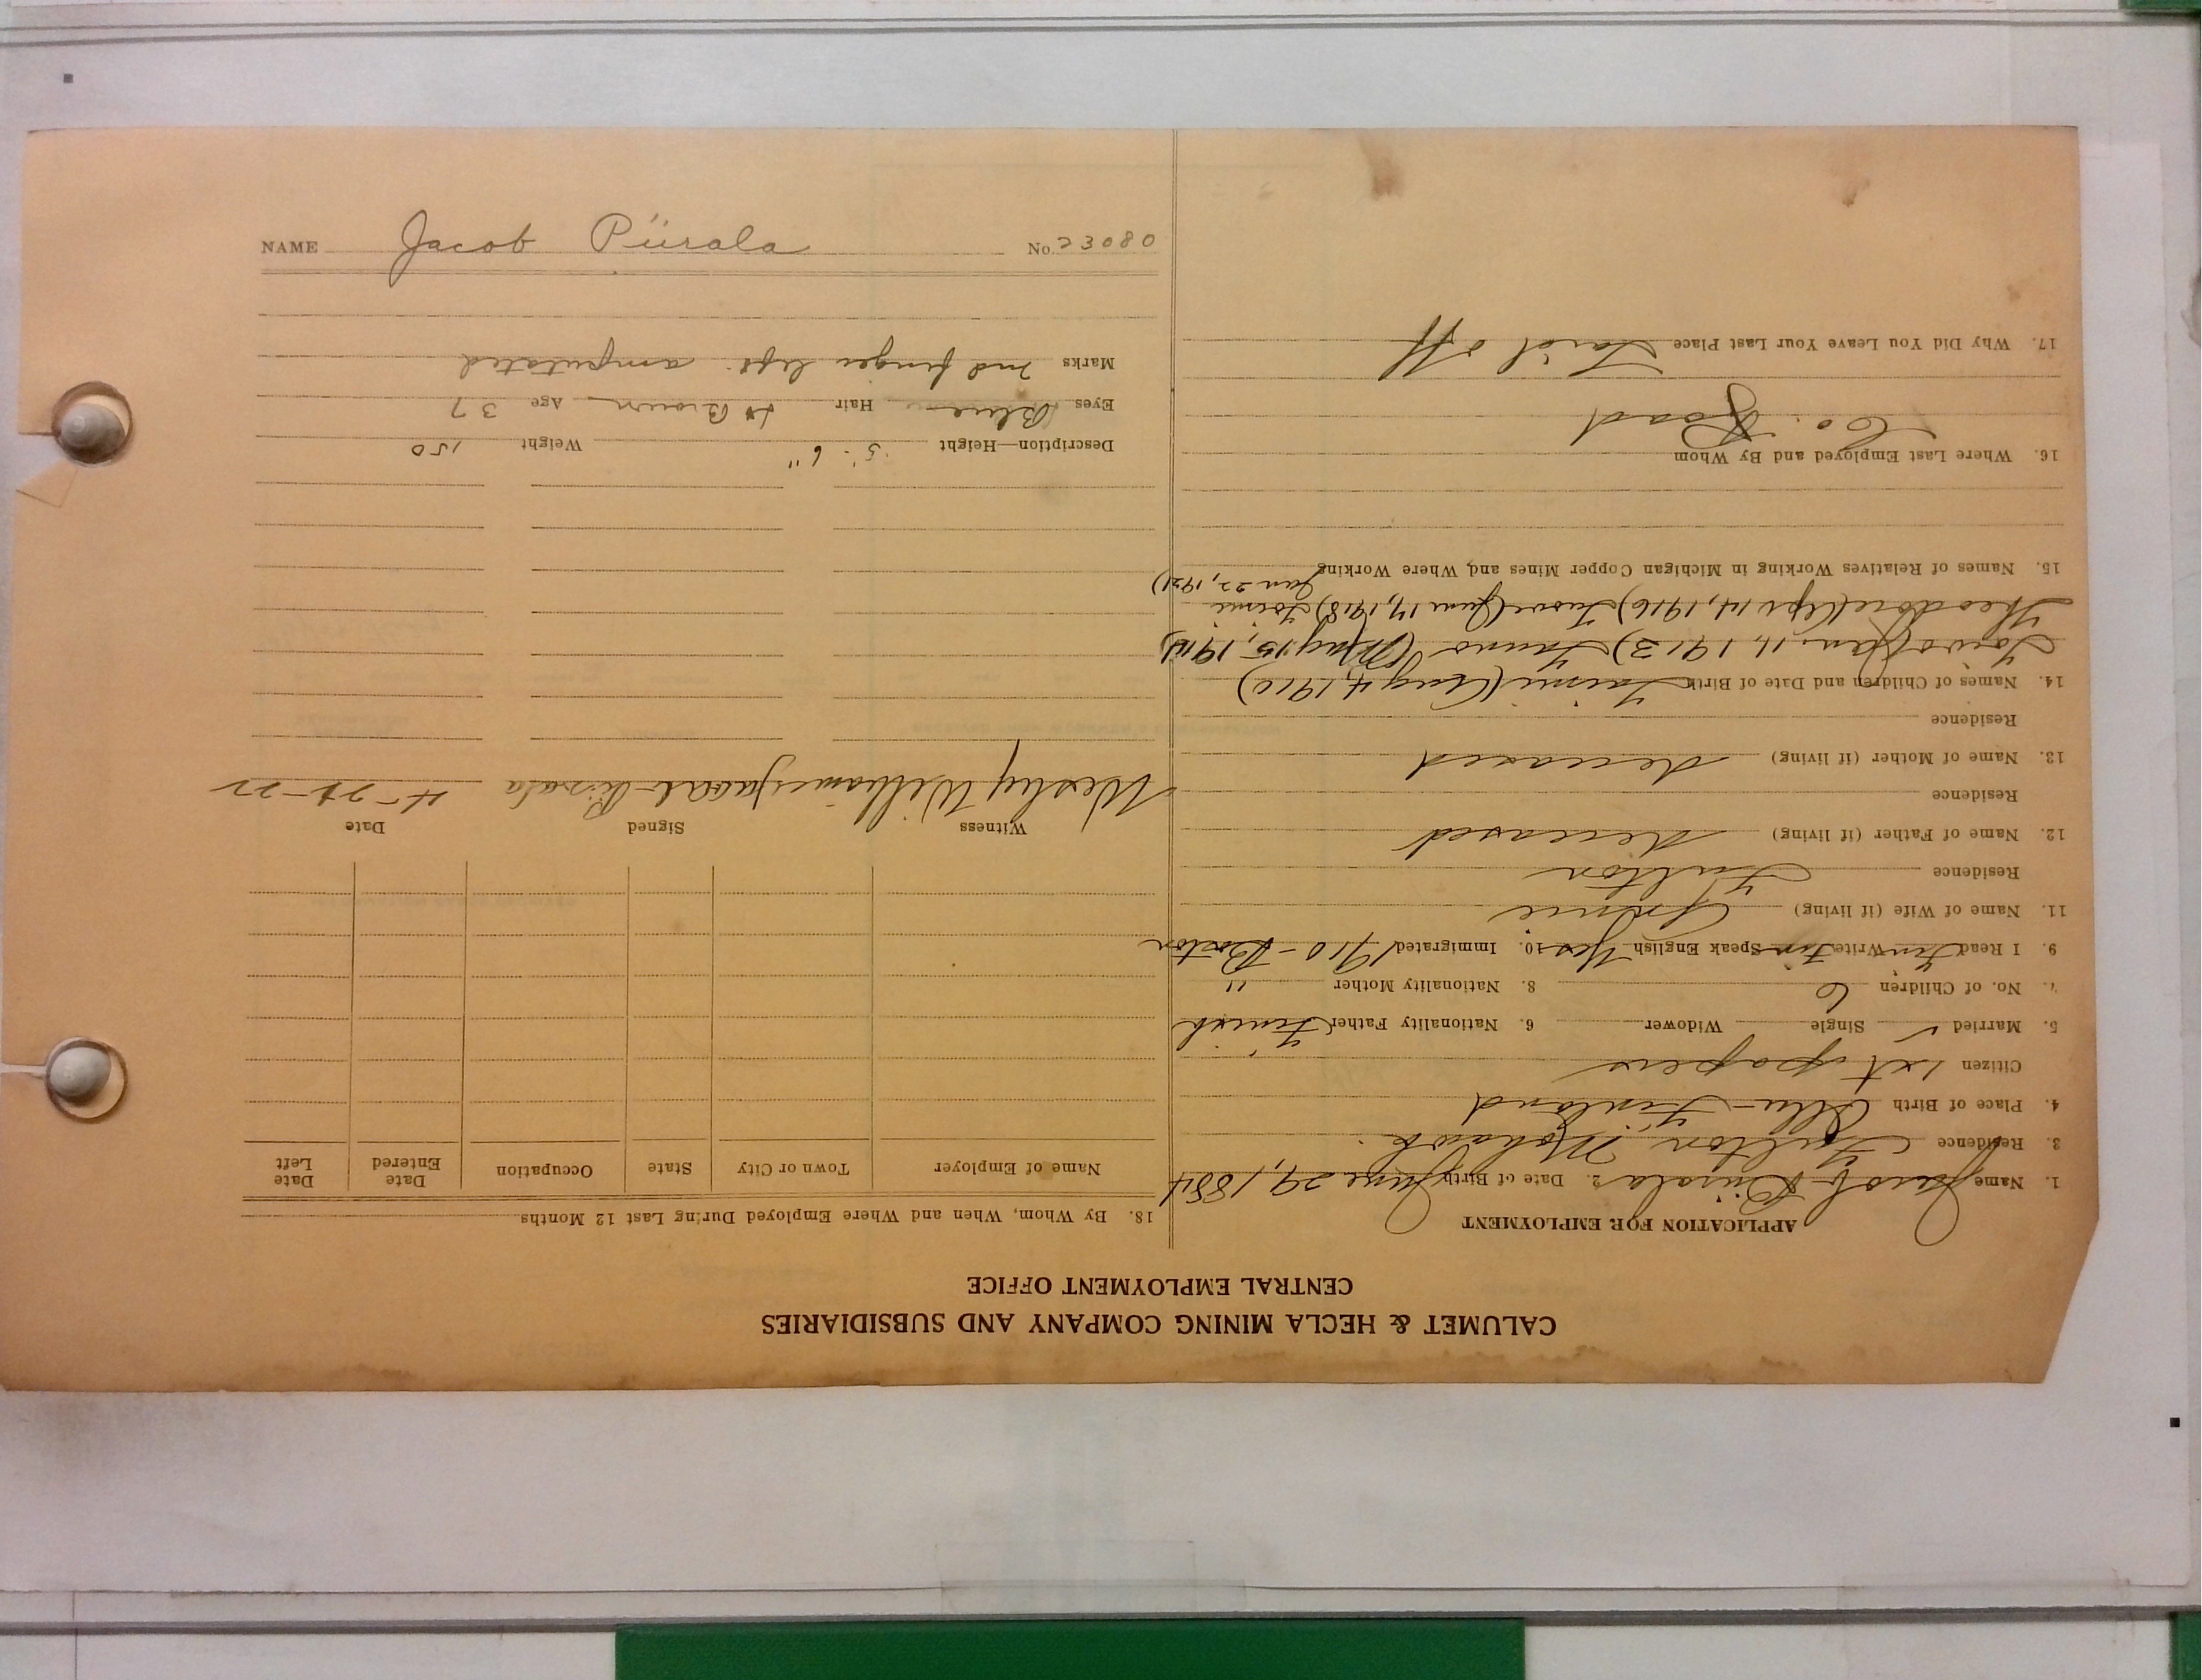 CALUMET & HECLA MINING COMPANY AND SUBSIDIARIES
CENTRAL EMPLOYMENT OFFICE
APPLICATION FOR EMPLOYMENT
1. Name Jacob Piirala 2. Date of Birth June 29, 1884
3. Residence Fulton Mohawk
4. Place of Birth Finland
Citizen 1st papers
5. Married ✓ Single Widower 6. Nationality Father Finish
7. No. of Children 6 8. Nationality Mother "
9. I Read Fin Write Fin Speak English Yes 10. Immigrated 1910 - Boston
11. Name of Wife (if living)
Residence Fulton
12. Name of Father (if living) deceased
Residence
13. Name of Mother (if living) deceased
Residence
14. Names of Children and Date of Birth (Aug 4, 1910)
Toivo (Jan. 11, 1913) (Aug 15, 1914)
Theodore (Apr 14, 1916) (June 17, 1918)
Jan 22, 1921)
15. Names of Relatives Working in Michigan Copper Mines and Where Working
16. Where Last Employed and By Whom
Co. Road
17. Why Did You Leave Your Last Place Laid off
18. By Whom, When and Where Employed During Last 12 Months
Name of Employer Town or City State Occupation Date Entered Date Left
Witness Signed Date
Wesley Williams Jacob Piirala
Description—Height 5'-6" Weight 150
Eyes Blue Hair Lt Brown Age 37
Marks 2nd finger left amputated
NAME Jacob Piirala No. 23080